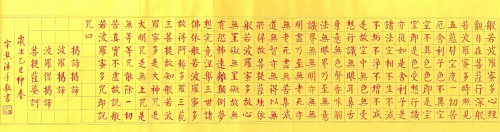 般若波羅蜜多心經
觀自在菩薩行深般
若波羅蜜多時照見
五蘊皆空度一切苦
厄舍利子色不異空
空不異色色即是空
空即是色受想行識
亦復如是舍利子是
諸法空相不生不滅
不垢不淨不增不減
是故空中無色無受
想行識無眼耳鼻舌
身意無色聲香味觸
法無眼界乃至無意
識界無無明亦無無
明盡乃至無老死亦
無老死盡無苦集滅
道無智亦無得以無
所得故菩提薩埵依
般若波羅蜜多故心
無罣礙無罣礙故無
有恐怖遠離顛倒夢
想究竟涅槃三世諸
佛依般若波羅蜜多
故得阿耨多羅三藐
三菩提故知般若波
羅蜜多是大神咒是
大明咒是無上咒是
無等等咒能除一切
苦真實不虛故說般
若波羅蜜多咒即說
咒曰
揭諦揭諦
波羅揭諦
波羅僧揭諦
菩提薩婆訶
歲次乙巳仲春
沐手敬書